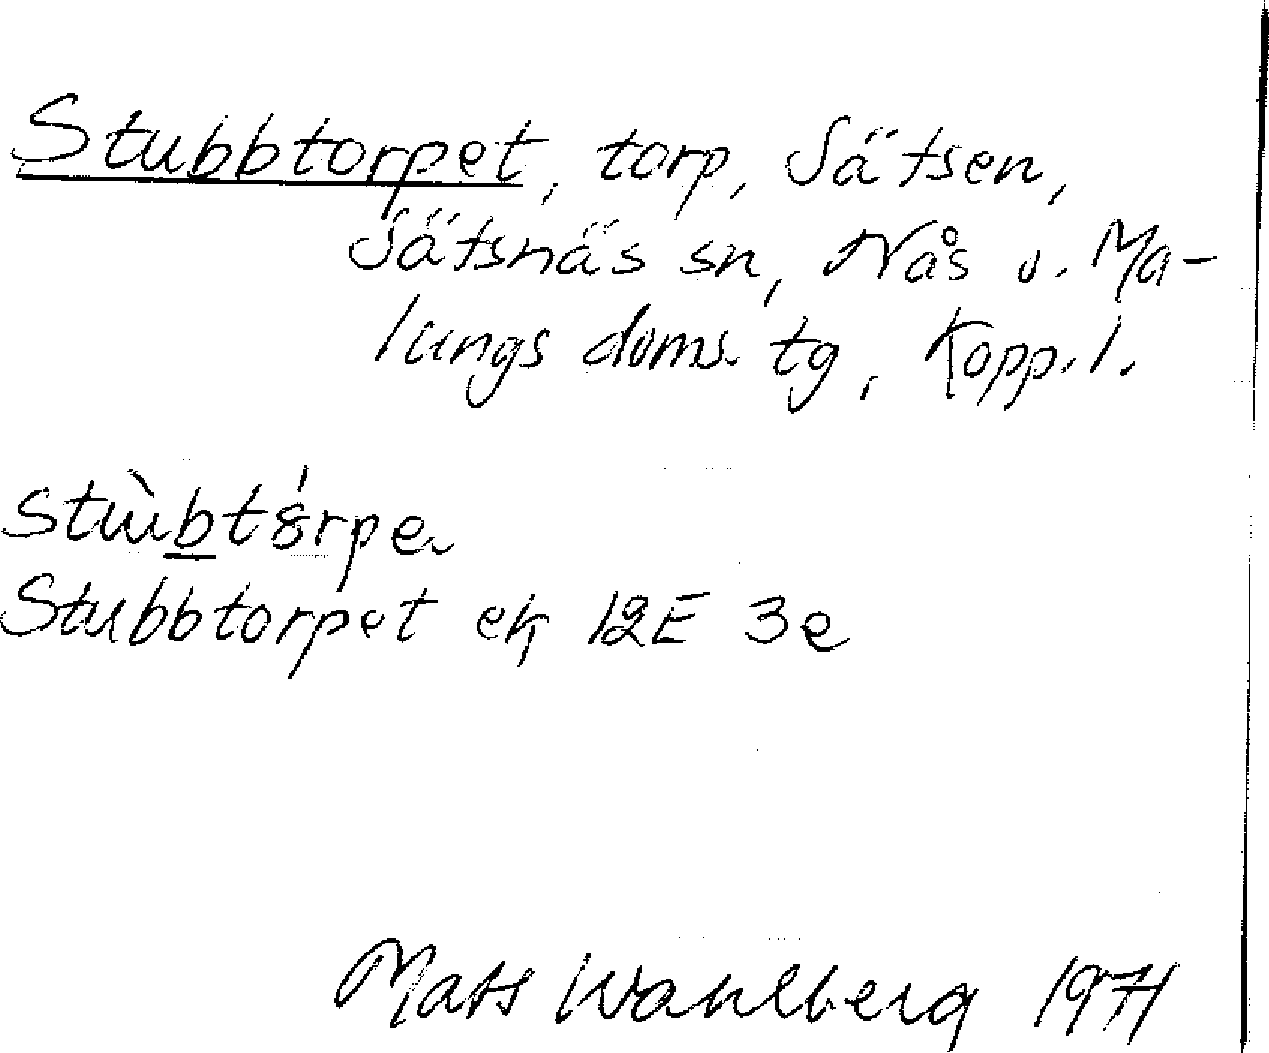 Stubbtorpet, torp, Sätsen,
Sätsnäs sn, Nås o. Ma-
lungs doms. tg, Kopp. l.
stùbtórpe
Stubbtorpet ek 12E 3e
Mats Wahlberg 1971